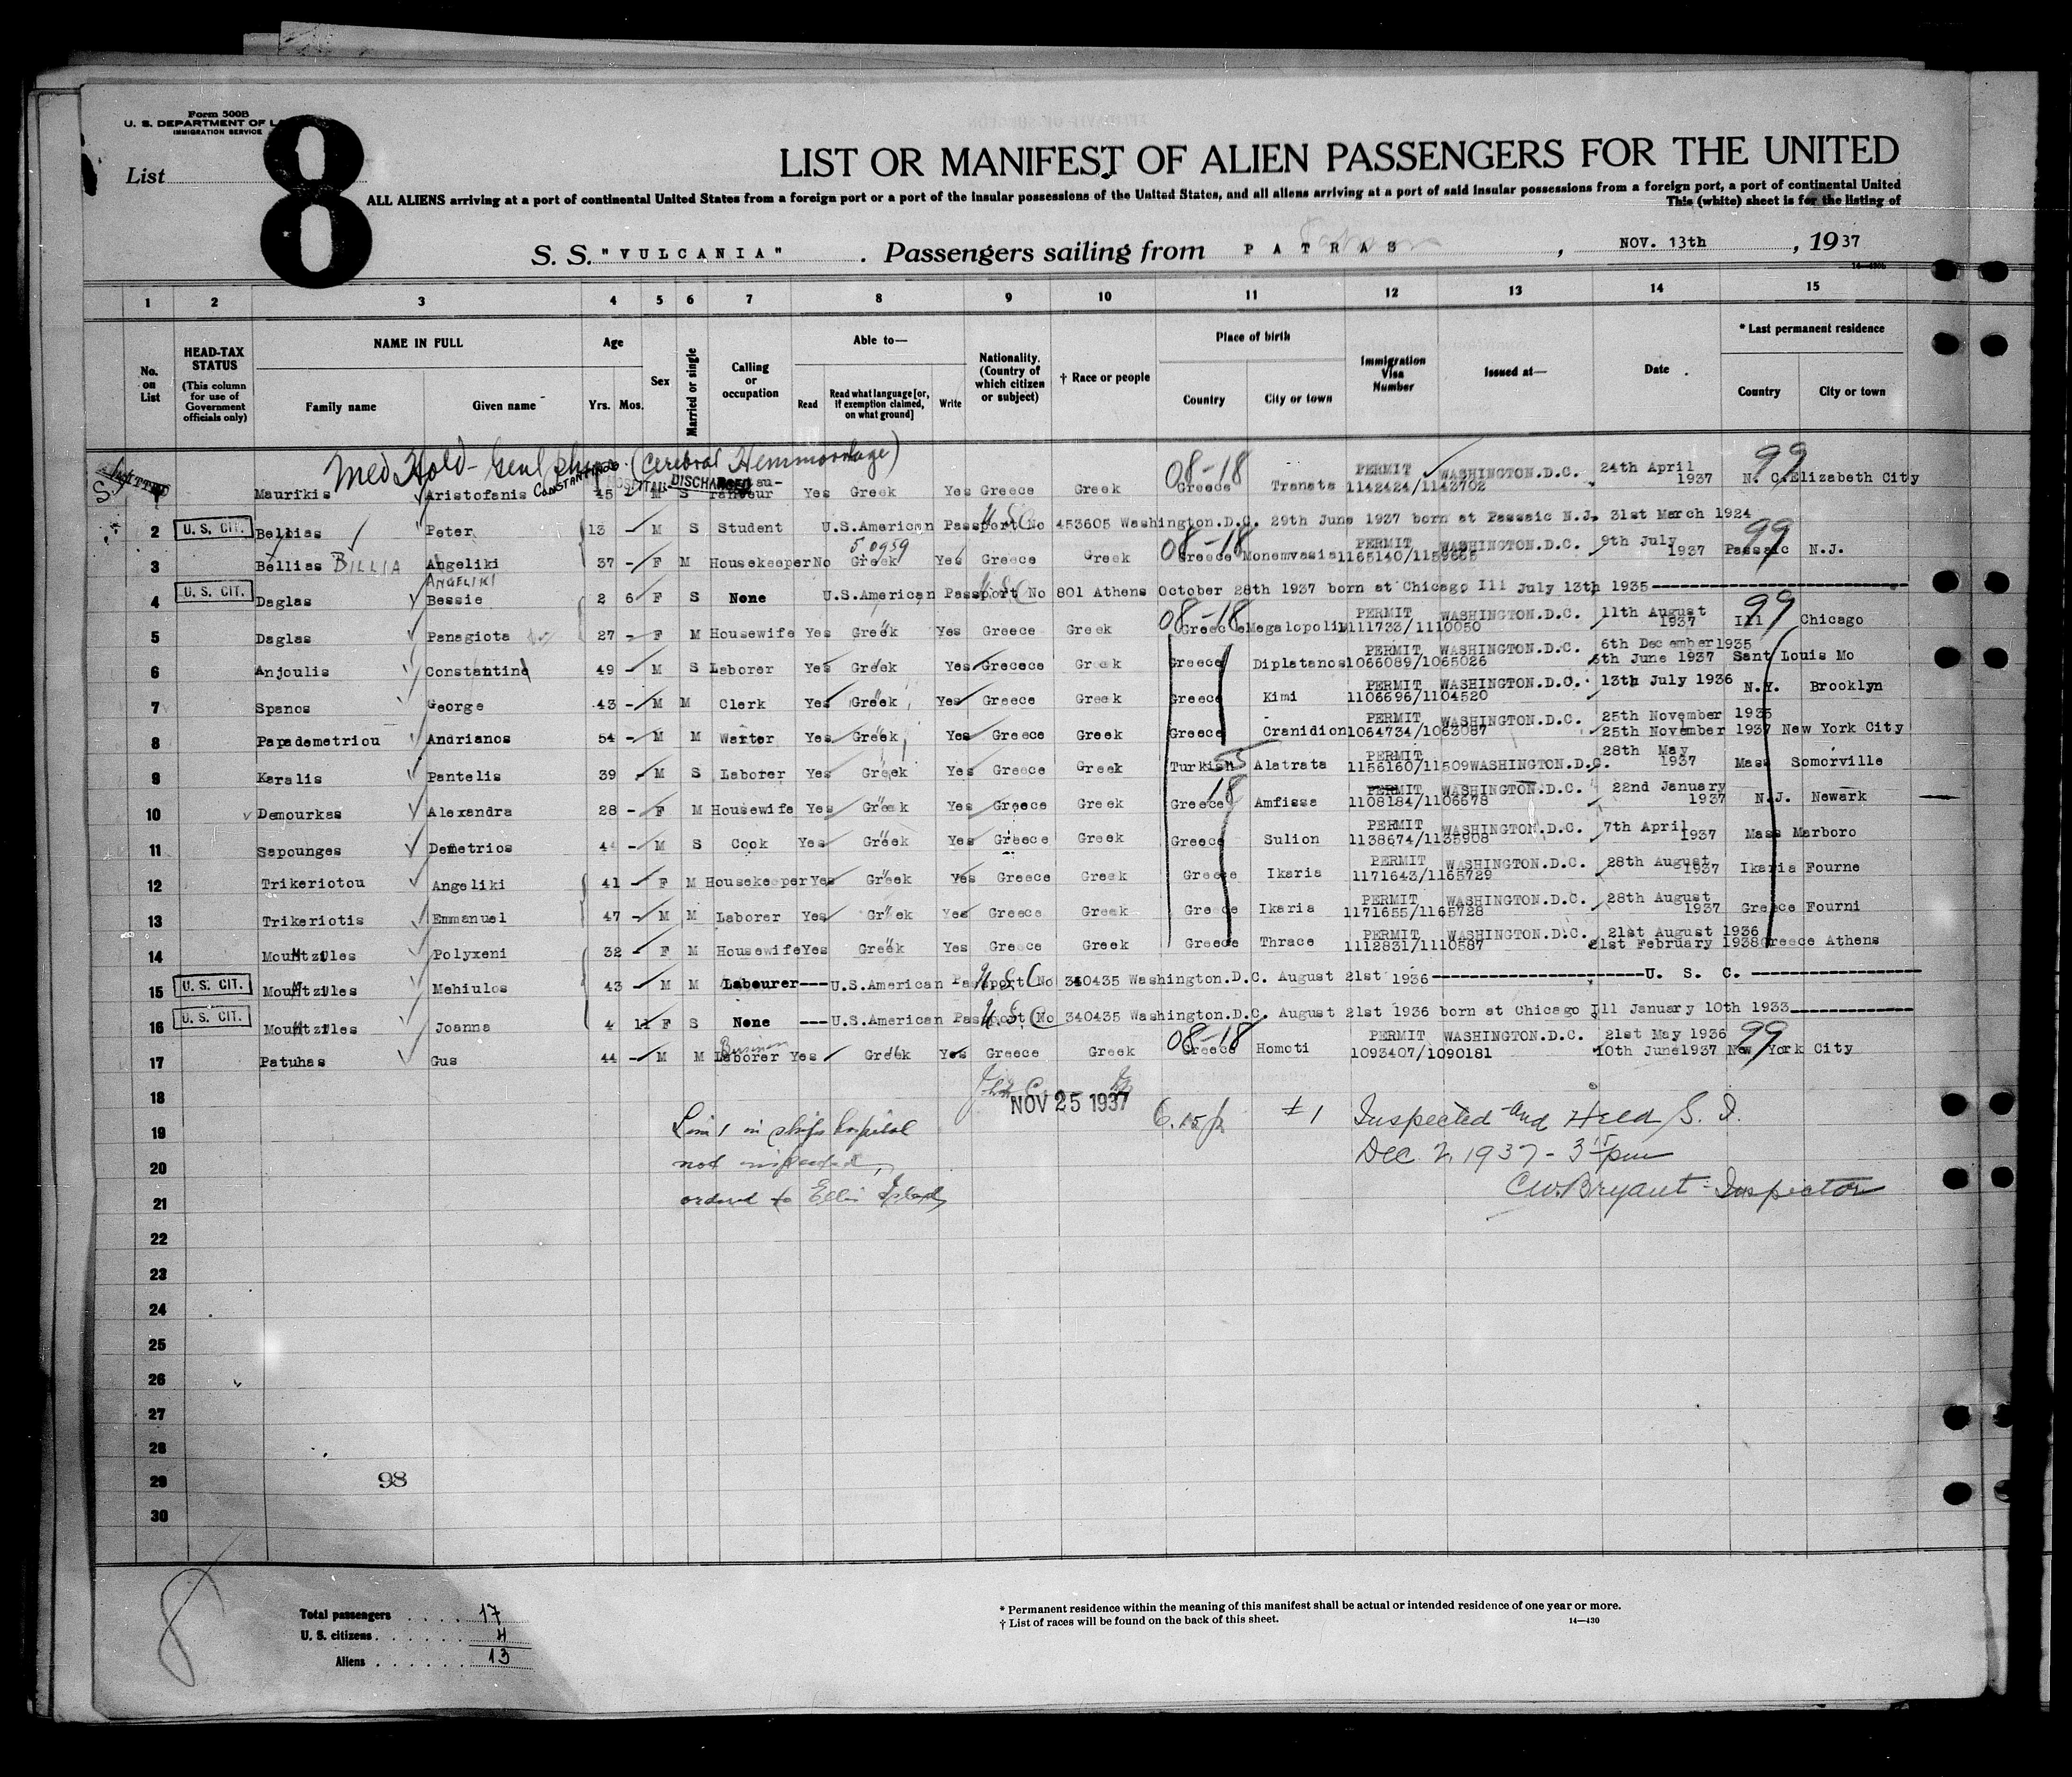 Form 500B
U. S. DEPARTMENT OF
IMMIGRATION SERVICE
List 8
LIST OR MANIFEST OF ALIEN PASSENGERS FOR THE UNITED
ALL ALIENS arriving at a port of continental United States from a foreign port or a port of the insular possessions of the United States, and all aliens arriving at a port of said insular possessions from a foreign port, a port of continental United
This (white) sheet is for the listing of
S. S. "VULCANIA" . Passengers sailing from PATRAS , NOV. 13th , 1937
1 2 3 4 5 6 7 8 9 10 11 12 13 14 15
No. on List
HEAD-TAX STATUS (This column for use of Government officials only)
NAME IN FULL Family name Given name
Age Yrs. Mos.
Sex
Married or single
Calling or occupation
Able to— Read Read what language [or, if exemption claimed, on what ground] Write
Nationality. (Country of which citizen or subject)
† Race or people
Place of birth Country City or town
Immigration Visa Number
Issued at—
Date
* Last permanent residence Country City or town
Med Hold - Genl (Cerebral Hemmorrhage)
ADMITTED CONSTANTINO HOSPITAL DISCHARGED
Maurikis Aristofanis 45 - M S Yes Greek Yes Greece Greek 08-18 Greece Tranata PERMIT 1142424/1143702 WASHINGTON.D.C. 24th April 1937 99 N. C. Elizabeth City
2 U. S. CIT. Bellias Peter 13 - M S Student U.S.American Passport No 453605 Washington.D.C. 29th June 1937 born at Passaic N.J. 31st March 1924
3 Bellias BILLIA Angeliki 37 - F M Housekeeper No 5 0959 Greek Yes Greece Greek 08-18 Greece Monemvasia PERMIT 1165140/1159665 WASHINGTON.D.C. 9th July 1937 99 Passaic N.J.
4 U. S. CIT. Daglas ANGELIKI Bessie 2 6 F S None U.S.American Passport No 801 Athens October 28th 1937 born at Chicago Ill July 13th 1935
5 Daglas Panagiota 27 - F M Housewife Yes Greek Yes Greece Greek 08-18 Greece Megalopolis PERMIT 1111733/1110050 WASHINGTON.D.C. 11th August 1937 99 Ill Chicago
6 Anjoulis Constantine 49 - M S Laborer Yes Greek Yes Grecece Greek Greece Diplatanos PERMIT 1066089/1065026 WASHINGTON.D.C. 6th December 1935 6th June 1937 Sant Louis Mo
7 Spanos George 43 - M M Clerk Yes Greek Yes Greece Greek Greece Kimi PERMIT 1106696/1104520 WASHINGTON.D.C. 13th July 1936 N.Y. Brooklyn
8 Papademetriou Andrianos 54 - M M Waiter Yes Greek Yes Greece Greek Greece Cranidion PERMIT 1064734/1063087 WASHINGTON.D.C. 25th November 1935 25th November 1937 New York City
9 Karalis Pantelis 39 - M S Laborer Yes Greek Yes Greece Greek Turkish 55 Alatrata PERMIT 1156160/11509 WASHINGTON.D.C. 28th May 1937 Mass Somorville
10 Demourkas Alexandra 28 - F M Housewife Yes Greek Yes Greece Greek 18 Greece Amfissa PERMIT 1108184/1106678 WASHINGTON.D.C. 22nd January 1937 N.J. Newark
11 Sapounges Demetrios 44 - M S Cook Yes Greek Yes Greece Greek Greece Sulion PERMIT 1138674/1135908 WASHINGTON.D.C. 7th April 1937 Mass Marboro
12 Trikeriotou Angeliki 41 - F M Housekeeper Yes Greek Yes Greece Greek Greece Ikaria PERMIT 1171643/1165729 WASHINGTON.D.C. 28th August 1937 Ikaria Fourne
13 Trikeriotis Emmanuel 47 - M M Laborer Yes Greek Yes Greece Greek Greece Ikaria PERMIT 1171655/1165728 WASHINGTON.D.C. 28th August 1937 Greece Fourni
14 Mountziles Polyxeni 32 - F M Housewife Yes Greek Yes Greece Greek Greece Thrace PERMIT 1112831/1110587 WASHINGTON.D.C. 21st August 1936 21st February 1938 Greece Athens
15 U. S. CIT. Mountziles Mehiulos 43 - M M Labourer---U.S.American Passport No 340435 Washington.D.C. August 21st 1936 U. S. C.
16 U. S. CIT. Mountziles Joanna 4 11 F S None ---U.S.American Passport No 340435 Washington.D.C. August 21st 1936 born at Chicago Ill January 10th 1933
17 Patuhas Gus 44 - M M Laborer Yes Greek Yes Greece Greek 08-18 Greece Homoti PERMIT 1093407/1090181 WASHINGTON.D.C. 21st May 1936 10th June 1937 99 New York City
18 NOV 25 1937
19 Line 1 in ships hospital 6.15 p #1 Inspected and Held S. I.
20 not inspected, Dec 2, 1937 - 3 15 pm
21 ordered to Ellis Island C.W. Bryant Inspector
22
23
24
25
26
27
28
29 98
30
8
Total passengers 17
U. S. citizens 4
Aliens 13
* Permanent residence within the meaning of this manifest shall be actual or intended residence of one year or more.
† List of races will be found on the back of this sheet.
14—430